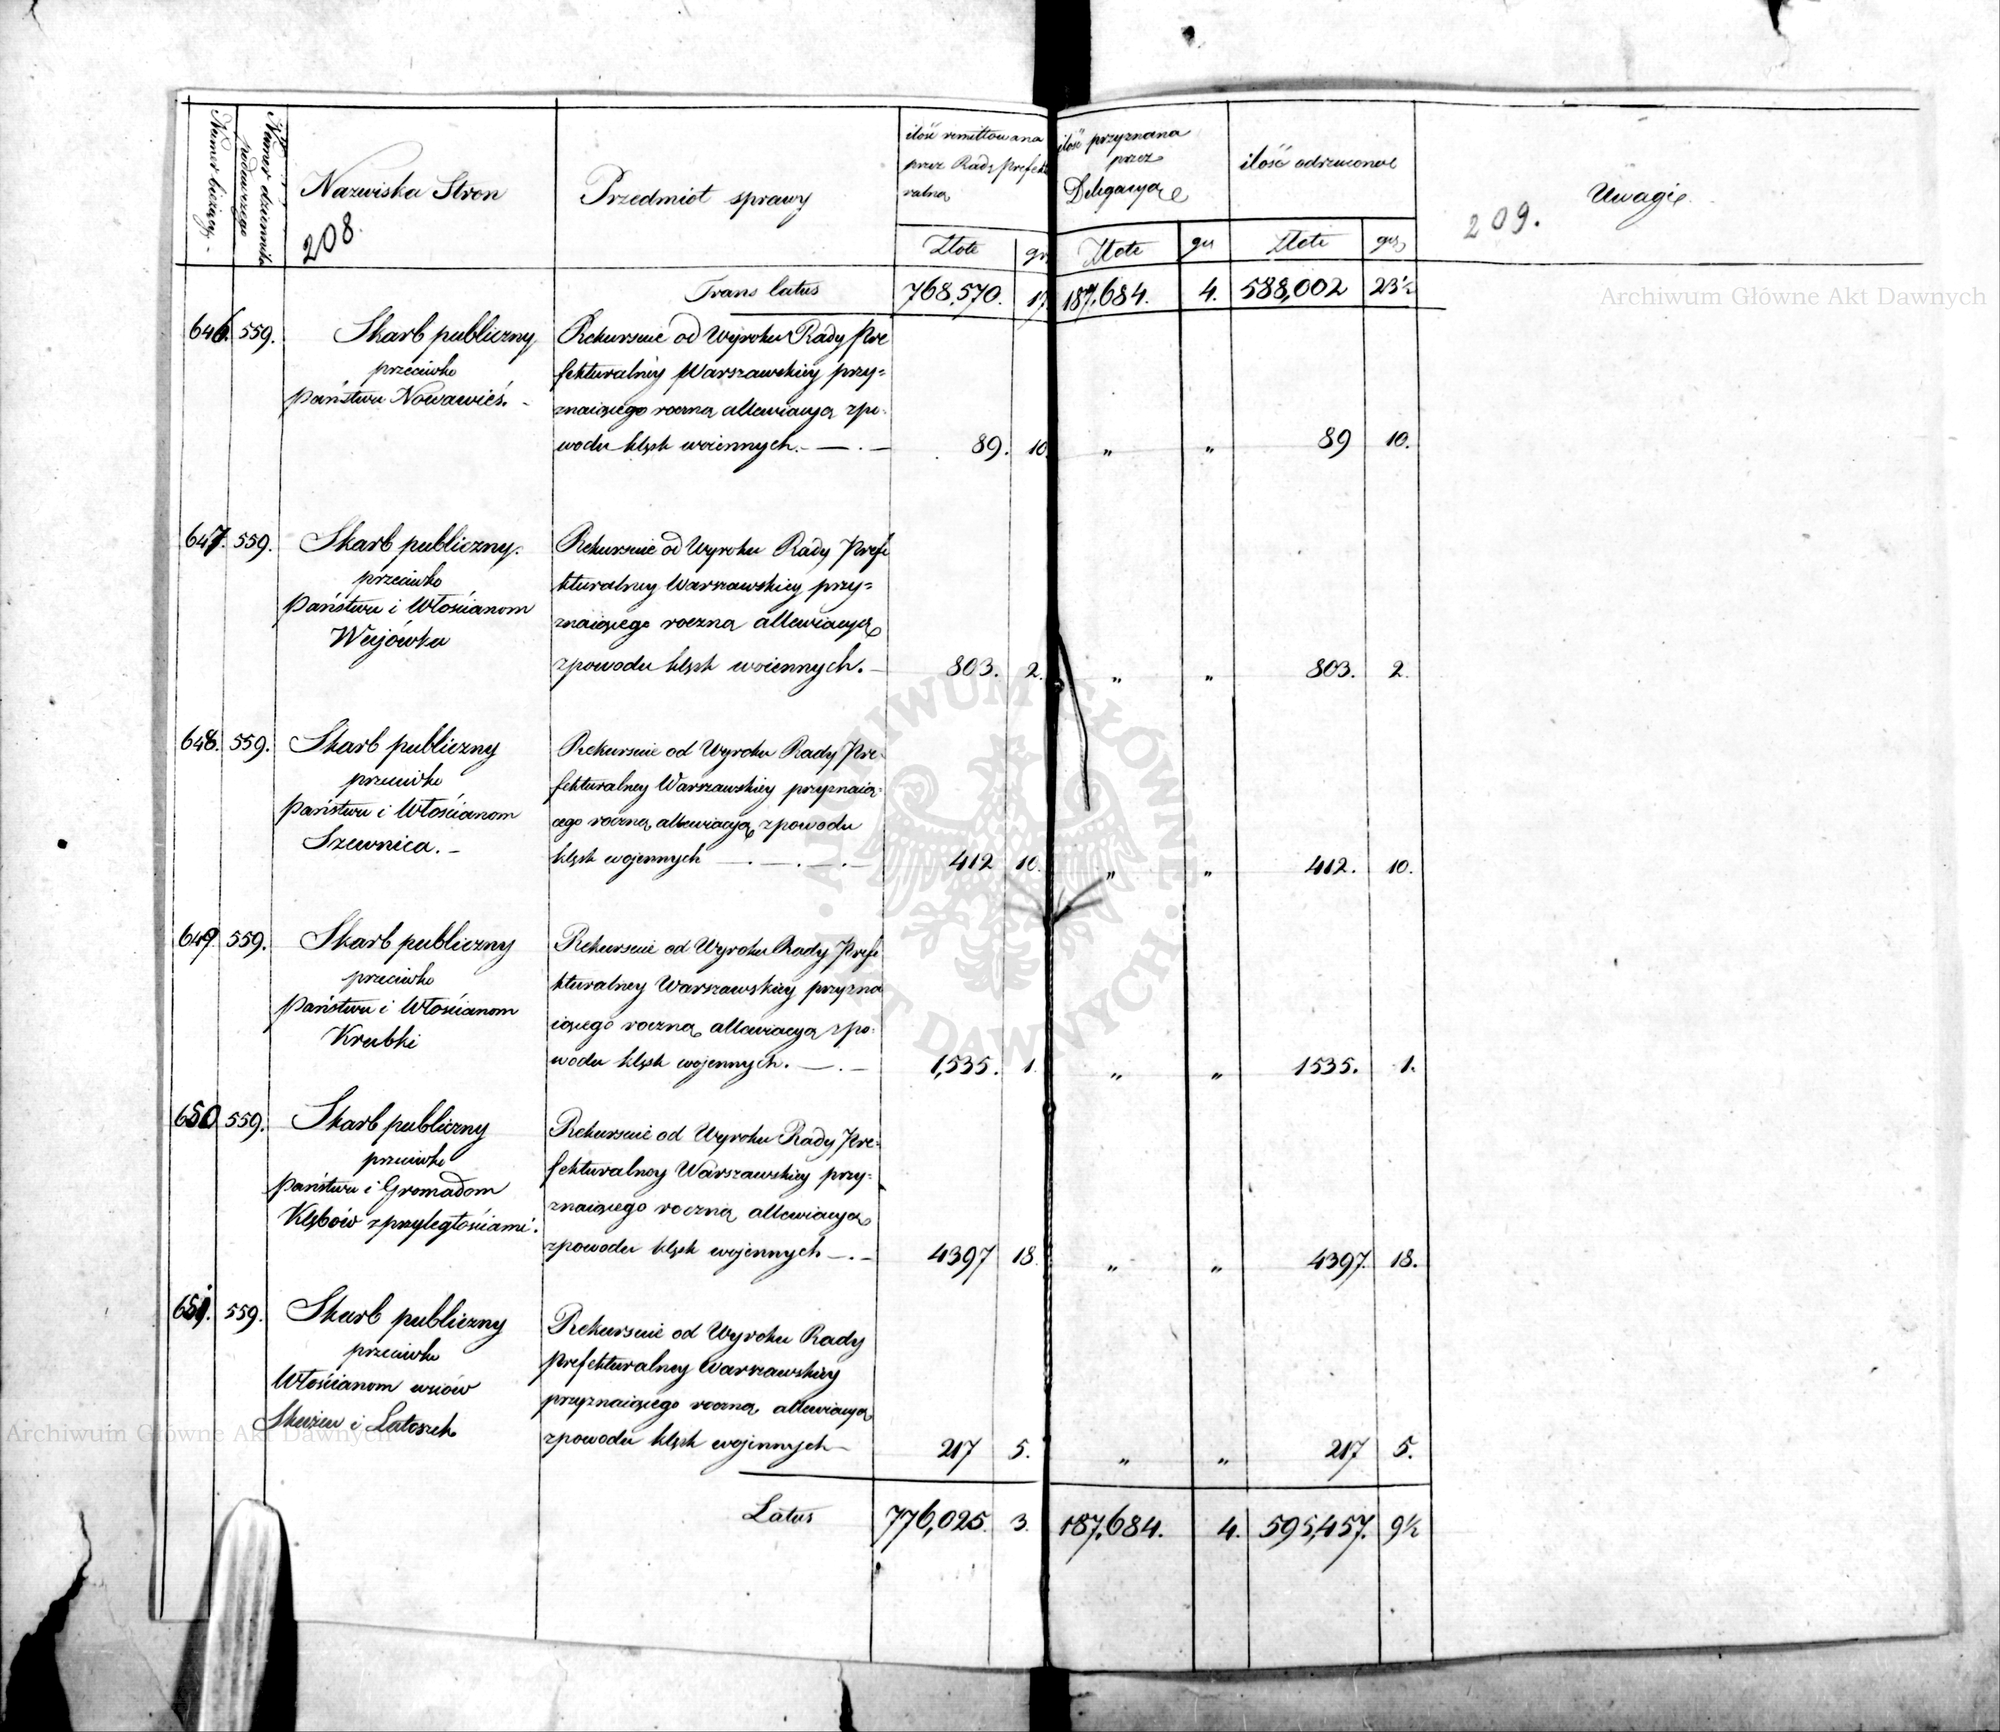 Numer bieżący.
Numer dziennik podawczego
Nazwiska Stron
208.
Przedmiot sprawy
ilość remittowana
przez Radę Prefektu
ralną
Złote gr
ilość przyznana
przez
Delegacyą
Złote gr
ilość odrzucona
Złote gr
209.
Uwagi
Trans latus 768,570. 17 187,684. 4. 588,002 23½
Archiwum Główne Akt Dawnych
646. 559. Skarb publiczny
przeciwko
Państwu Nowawieś. -
Rekursuie od Wyroku Rady Pre
fekturalnéy Warszawskiéy przy=
znaiącego roczną allewiacyą zpo-
wodu klęsk woiennych. — . — 89. 10. „ „ 89 10.
647. 559. Skarb publiczny.
przeciwko
Państwu i Włościanom
Wujówka
Rekursuie od Wyroku Rady Prefe
kturalney Warszawskiey przy=
znaiącego roczną allewiacyą
zpowodu klęsk woiennych. — 803. 2. „ „ 803. 2.
648. 559. Skarb publiczny
przeciwko
Państwu i Włościanom
Szewnica. -
Rekursuie od Wyroku Rady Pre-
fekturalney Warszawskiey przyznaią-
cego roczną allewiacyą zpowodu
klęsk wojennych — . — . — . — 412 10. „ „ 412. 10.
649. 559. Skarb publiczny
przeciwko
Państwu i Włościanom
Krubki
Rekursuie od Wyroku Rady Prefe
kturalney Warszawskiey przyzna
iącego roczną allewiacyą zpo-
wodu klęsk wojennych. — . — 1,535. 1. „ „ 1535. 1.
650 559. Skarb publiczny
przeciwko
Państwu i Gromadom
Kłębów zprzyległościami.
Rekursuie od Wyroku Rady Pre-
fekturalney Warszawskiey przy-
znaiącego roczną allewiacyą
zpowodu klęsk wojennych — . — 4397 18. „ „ 4397. 18.
651. 559. Skarb publiczny
przeciwko
Włościanom wsiów
i Latoszek
Rekursuie od Wyroku Rady
Prefekturalney Warszawskiey
przyznaiącego roczną allewiacyą
zpowodu klęsk wojennych — 217 5. „ „ 217 5.
Latus 776,025. 3. 187,684. 4. 595,457. 9½
Archiwum Główne Akt Dawnych
ARCHIWUM GŁÓWNE AKT DAWNYCH